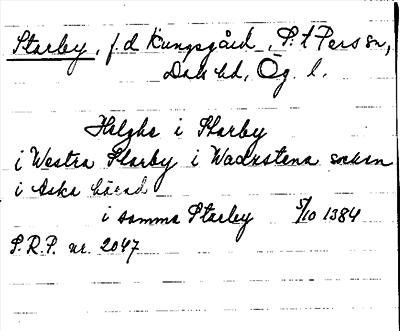 Starby, f.d Kungsgård, S:t Pers sn,
Dals hd, Ög. l.
Helghe i Starby
i Westra Starby i Wadzstena sokn
i Aska härad
i samma Starby 5/10 1384
S.R.P. nr. 2047